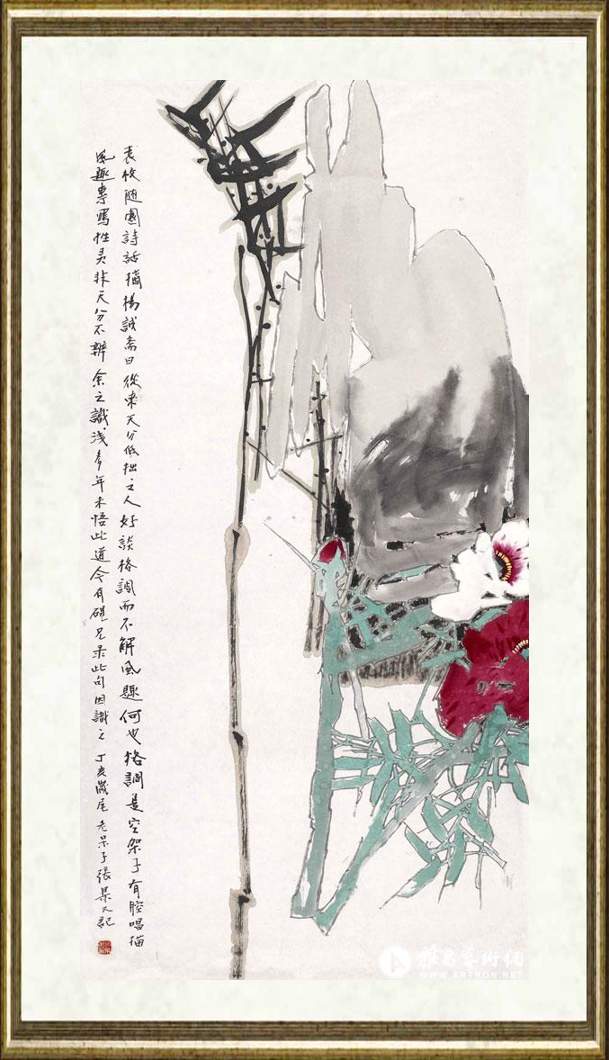 袁枚随園詩話摘楊誠斋曰從來天分低拙之人好談格調而不解風趣何也格調是空架子有腔口易描
風趣專寫性灵非天分不辨余之識浅多年未悟此道今有硯兄录此句因識之丁亥歲尾老呆子張杲又記
雅昌藝術網
WWW.ARTRON.NET